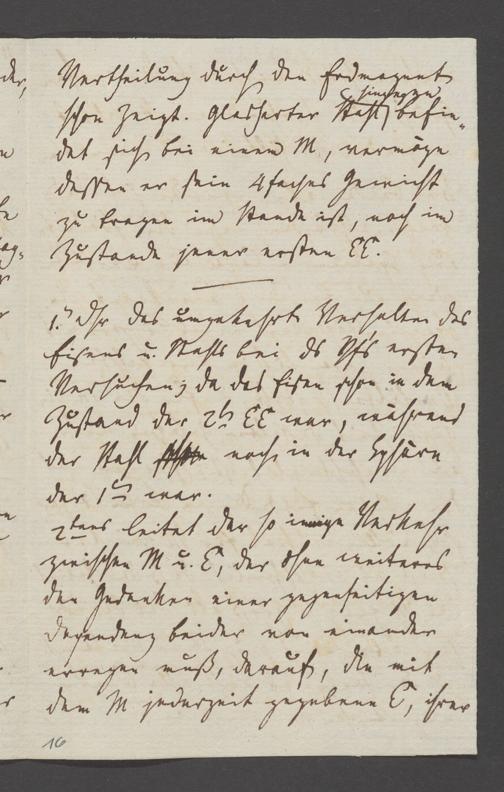 Vertheilung durch den Erdmagnet
schon zeigt. Glasharter Stahl hingegen befin-
det sich bei einem M, vermöge
dessen er sein 4faches Gewicht
zu tragen im Stande ist, noch im
Zustande jener ersten CC.
1.) Dhr das umgekehrte Verhalten des
Eisens u. Stahls bei ds Pfs ersten
Versuchen; da das Eisen schon in dem
Zustand der 2t CC war, während
der Stahl noch in der Sphäre
der 1sten war.
2tens leitet der so innige Verkehr
zwischen M u. C, der ohne weiteres
den Gedanken einer gegenseitigen
Dependenz beider von einander
erregen muß, darauf, die mit
dem M jederzeit gegebene C, ihrer
16
der,